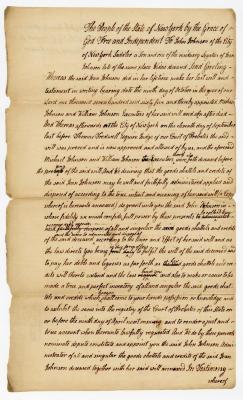 The People of the State of New York by the Grace of
God Free and Independent To John Johnson of the City
of New York Saddler a Son and one of the residuary legatees of Jean
Johnson late of the same place Widow deceased Send Greeting
Whereas the said Jean Johnson did in her lifetime make her last will and
testament in writing bearing date the ninth day of October in the year of our
Lord one thousand seven hundred and sixty five and thereby appointed
Johnson and William Johnson Executors of her said will and dyed after
And Whereas afterwards at the City of New York on the eleventh day of September
last before Thomas Tredwell Esquire Judge of our Court of Probates the said
will was proved and is now approved and allowed of by us, and the aforesaid
Michael Johnson and William Johnson Executors are both deceased before
the of the said will And We desiring that the goods chattels and credits
of the said Jean Johnson may be well and faithfully administered applied and
disposed of according to the true intent and meaning of her said will a Copy
whereof is hereunto annexed, do grant unto you the said John Johnson in
whose fidelity we much confide, full power by these presents to
of all and singular the goods chattels and credits
of the said deceased according to the tenor and Effect of her will and as
the law directs you being to fulfill the will of the said deceased
to pay her debts and legacies so far forth as goods chattels and cre-
dits will thereto extend and the law and also to make or cause to be
made a true and perfect inventory of all and singular the said goods chat-
tels and credits which to your hands possession or knowledge and
to exhibit the same into the registry of the Court of Probates of this State on
or before the ninth day of April next ensuing and to render a just and
true account when thereunto lawfully requested And We do by these presents
nominate depute constitute and appoint you the said John Johnson Admi-
nistrator of all and singular the goods chattels and credits of the said Jean
Johnson deceased together with her said will annexed In Testimony
whereof